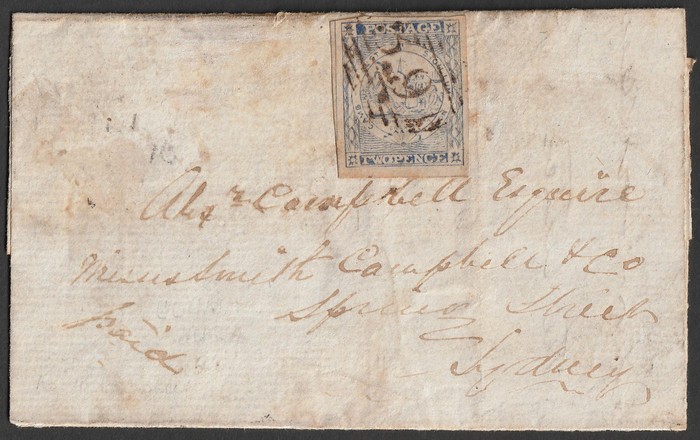 POSTAGE
TWOPENCE
Alexr Campbell Esquire
Messrs Smith Campbell & Co
Spring Street
paid
Sydney